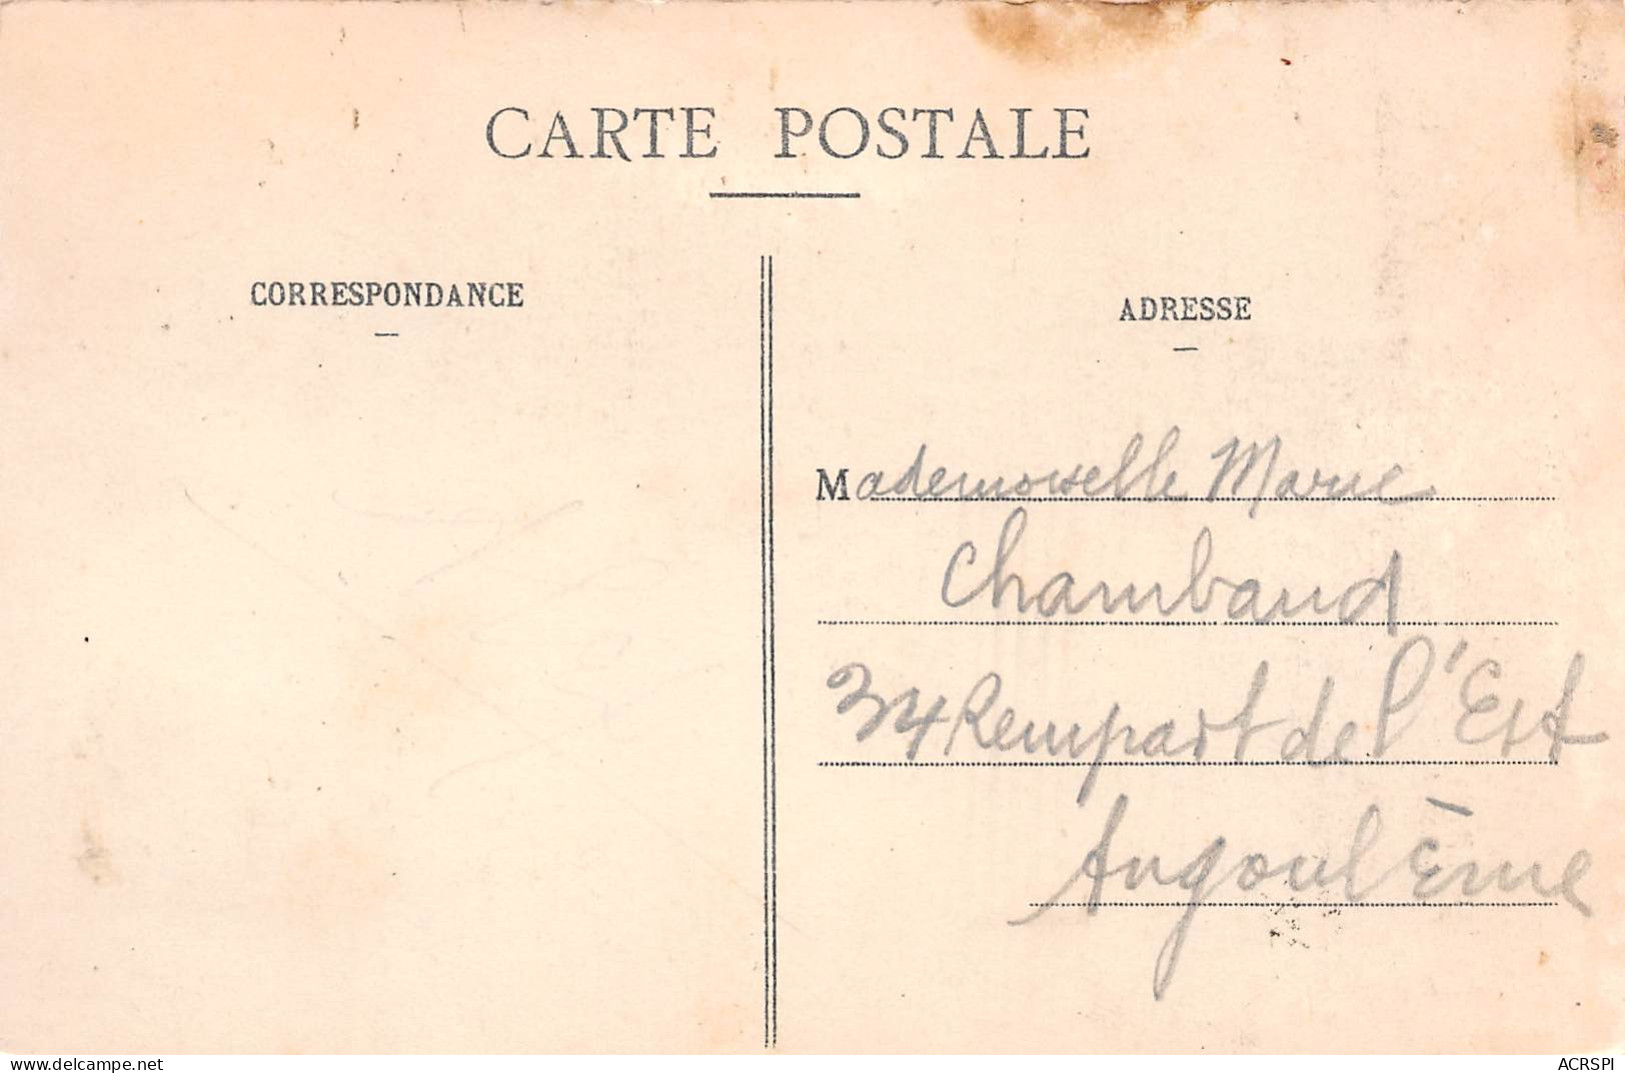 CARTE POSTALE
CORRESPONDANCE
ADRESSE
Mademoiselle Marie
Chambaud
34 Rempart de l'Est
Angoulême
delcampe.net
ACRSPI